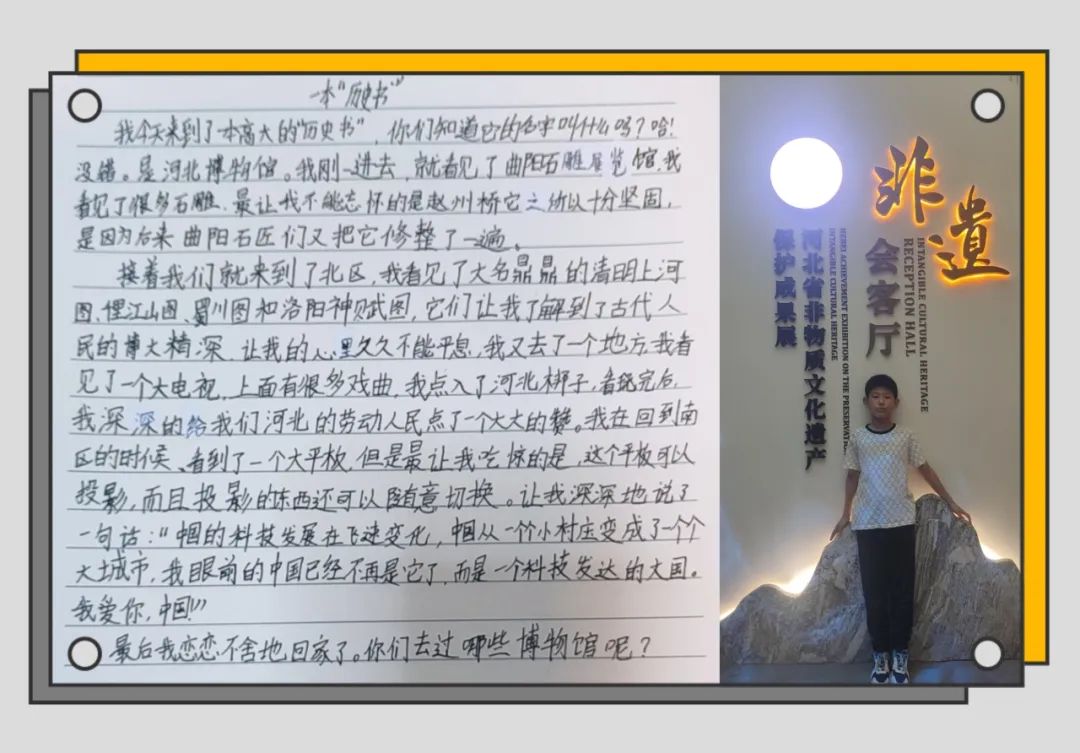 一本“历史书”
我今天来到了一本高大的“历史书”，你们知道它的名字叫什么吗？哈！
没错。是河北博物馆。我刚一进去，就看见了曲阳石雕展览馆，我
看见了很多石雕、最让我不能忘怀的是赵州桥它之所以十分坚固，
是因为后来曲阳石匠们又把它修整了一遍。
接着我们就来到了北区，我看见了大名鼎鼎的清明上河
图、俚江山图、蜀川图和洛阳神赋图，它们让我了解到了古代人
民的博大精深、让我的心里久久不能平息，我又去了一个地方，我看
见了一个大电视，上面有很多戏曲，我点入了河北梆子，看完后，
我深深的给我们河北的劳动人民点了一个大大的赞。我在回到南
区的时候、看到了一个大平板，但是最让我吃惊的是，这个平板可以
投影，而且投影的东西还可以随意切换。让我深深地说了
一句话：“中国的科技发展在飞速变化，中国从一个个小村庄变成了一个个
大土城市，我眼前的中国已经不再是它了，而是一个科技发达的大国。
我爱你，中国！”
最后我恋恋不舍地回家了。你们去过哪些博物馆呢？
非遗
会客厅
INTANGIBLE CULTURAL HERITAGE
RECEPTION HALL
河北省非物质文化遗产
保护成果展
HEBEI ACHIEVEMENT EXHIBITION ON THE
INTANGIBLE CULTURAL HERITAGE